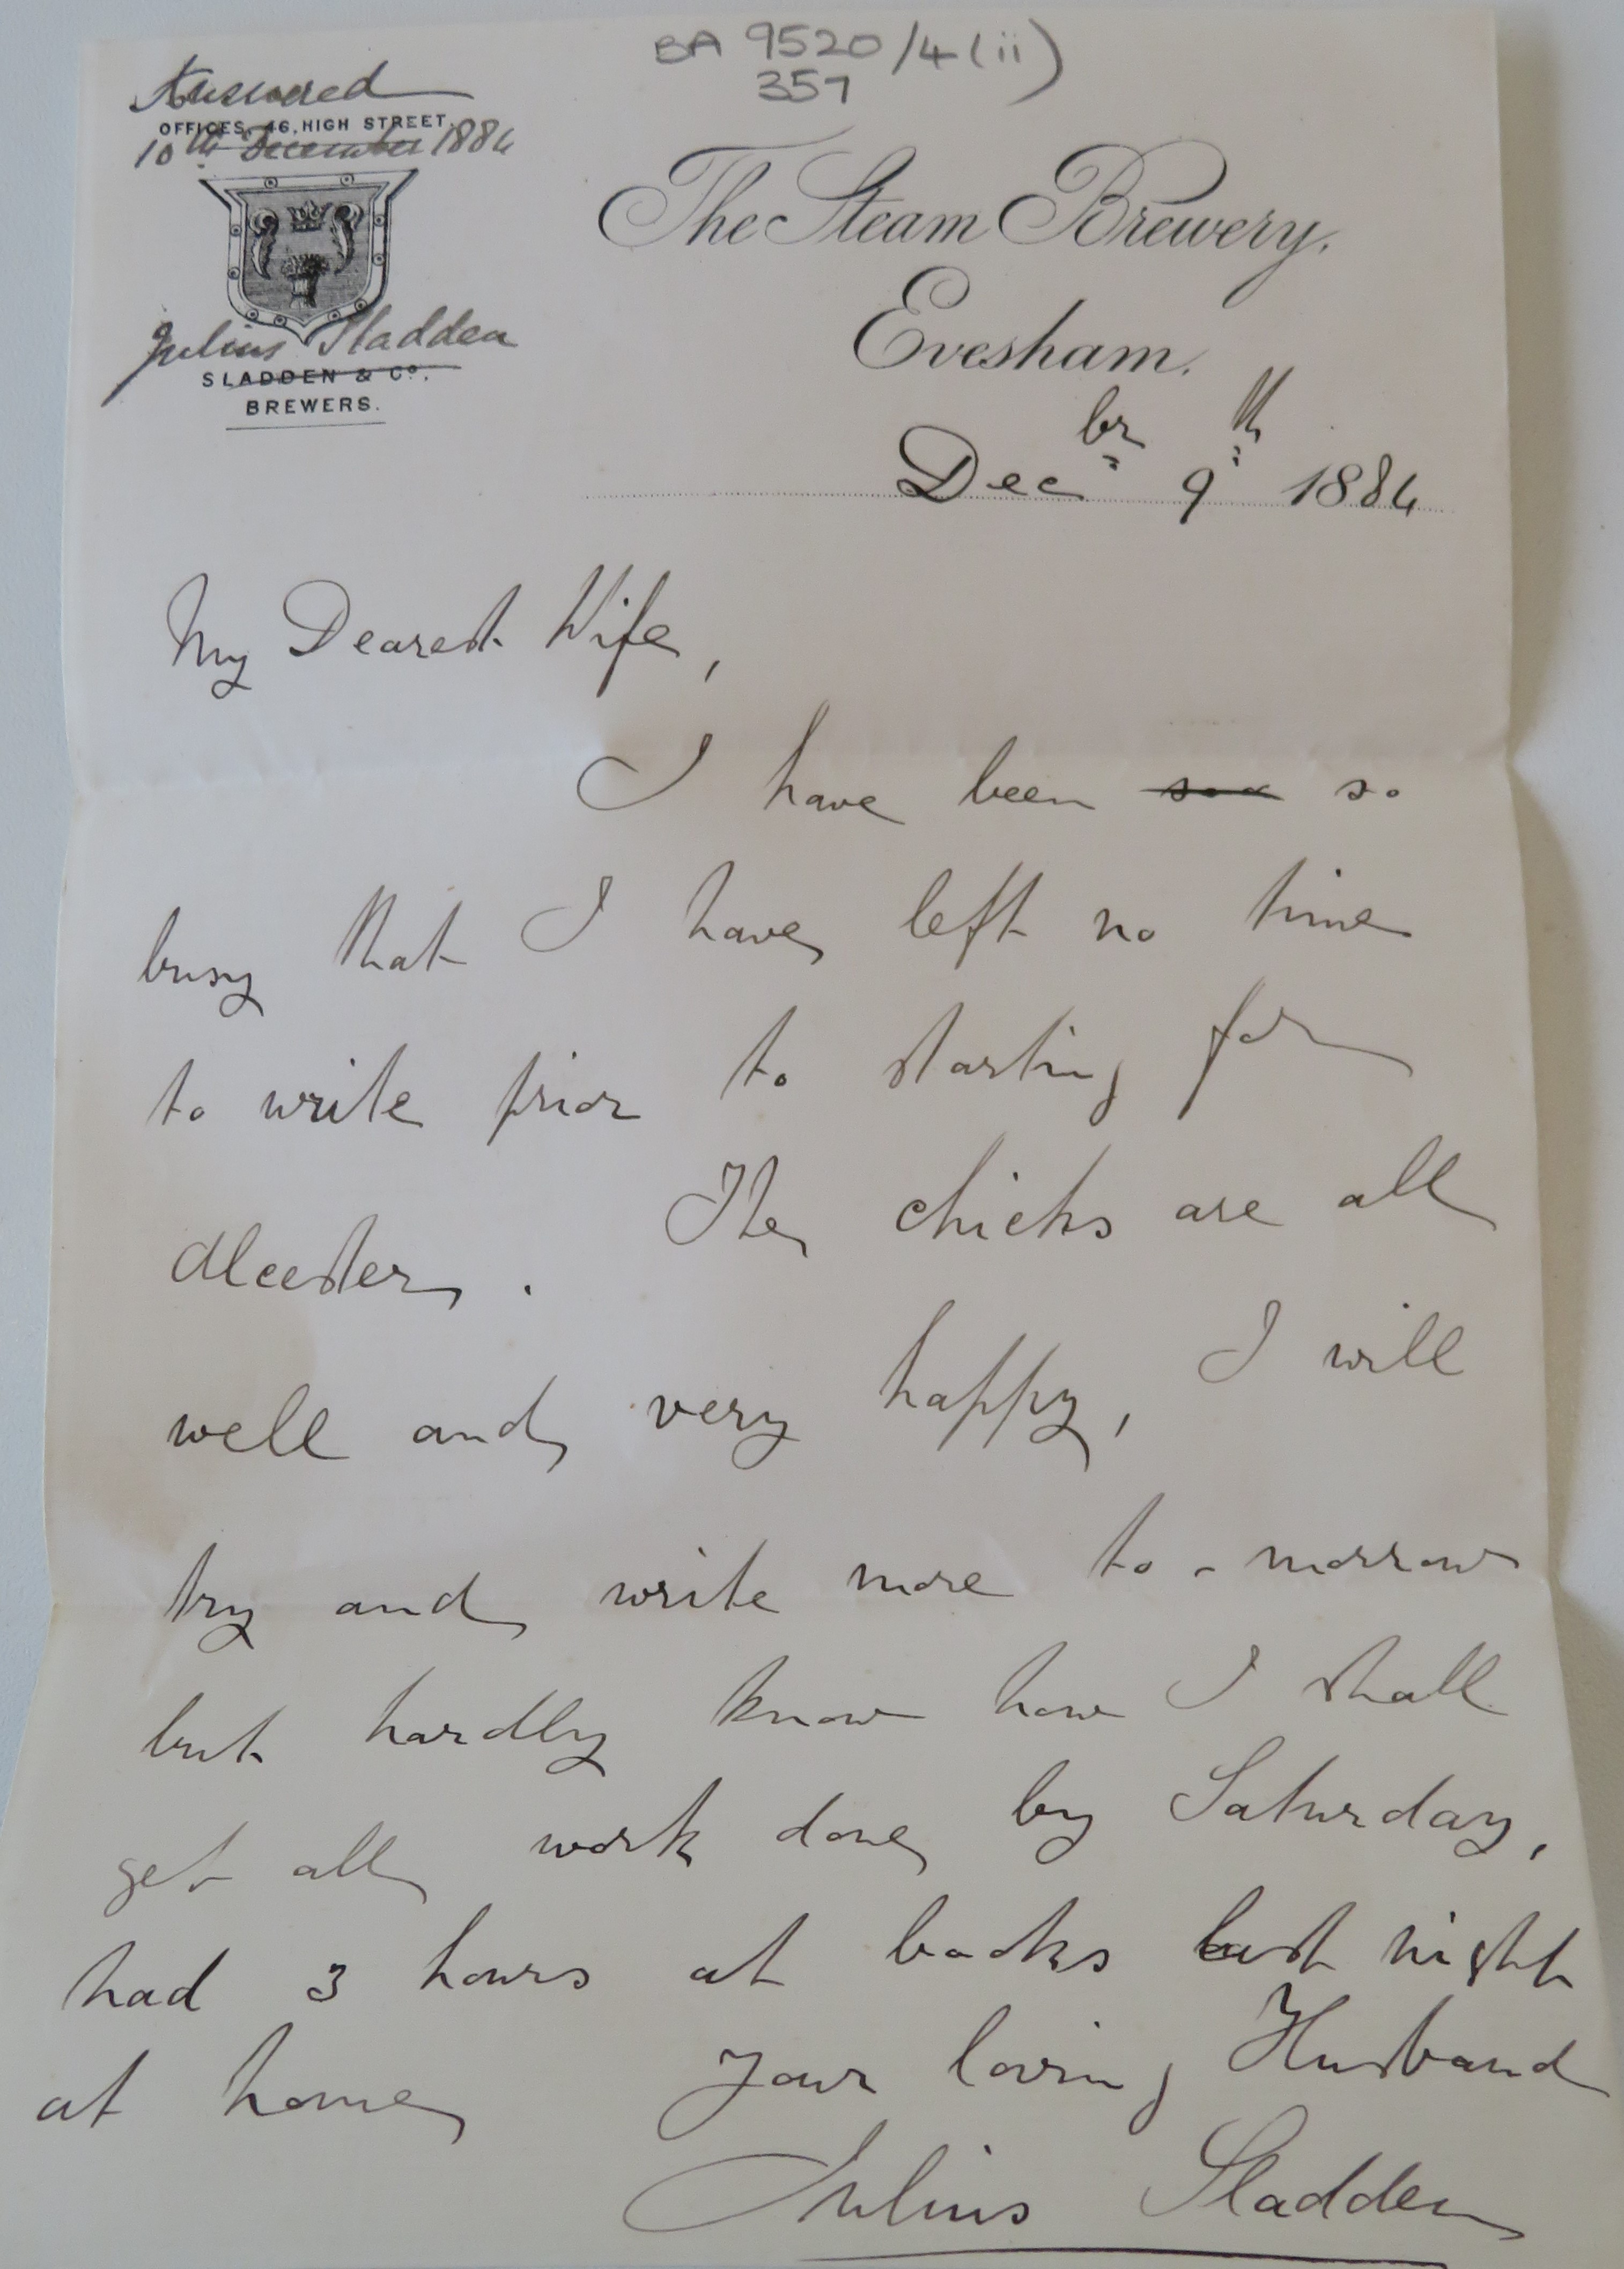 BA 9520/4(ii)
357
Answered
OFFICES, 46, HIGH STREET.
10th December 1884
Julius Sladden
SLADDEN & Co.
BREWERS.
The Steam Brewery,
Evesham.
Decbr 9th 1884
My Dearest Wife,
I have been so
busy that I have left no time
to write prior to starting for
Alcester. The chicks are all
well and very happy, I will
try and write more to-morrow
but hardly know how I shall
get all work done by Saturday,
had 3 hours at books last night
at home
Your loving Husband
Julius Sladden